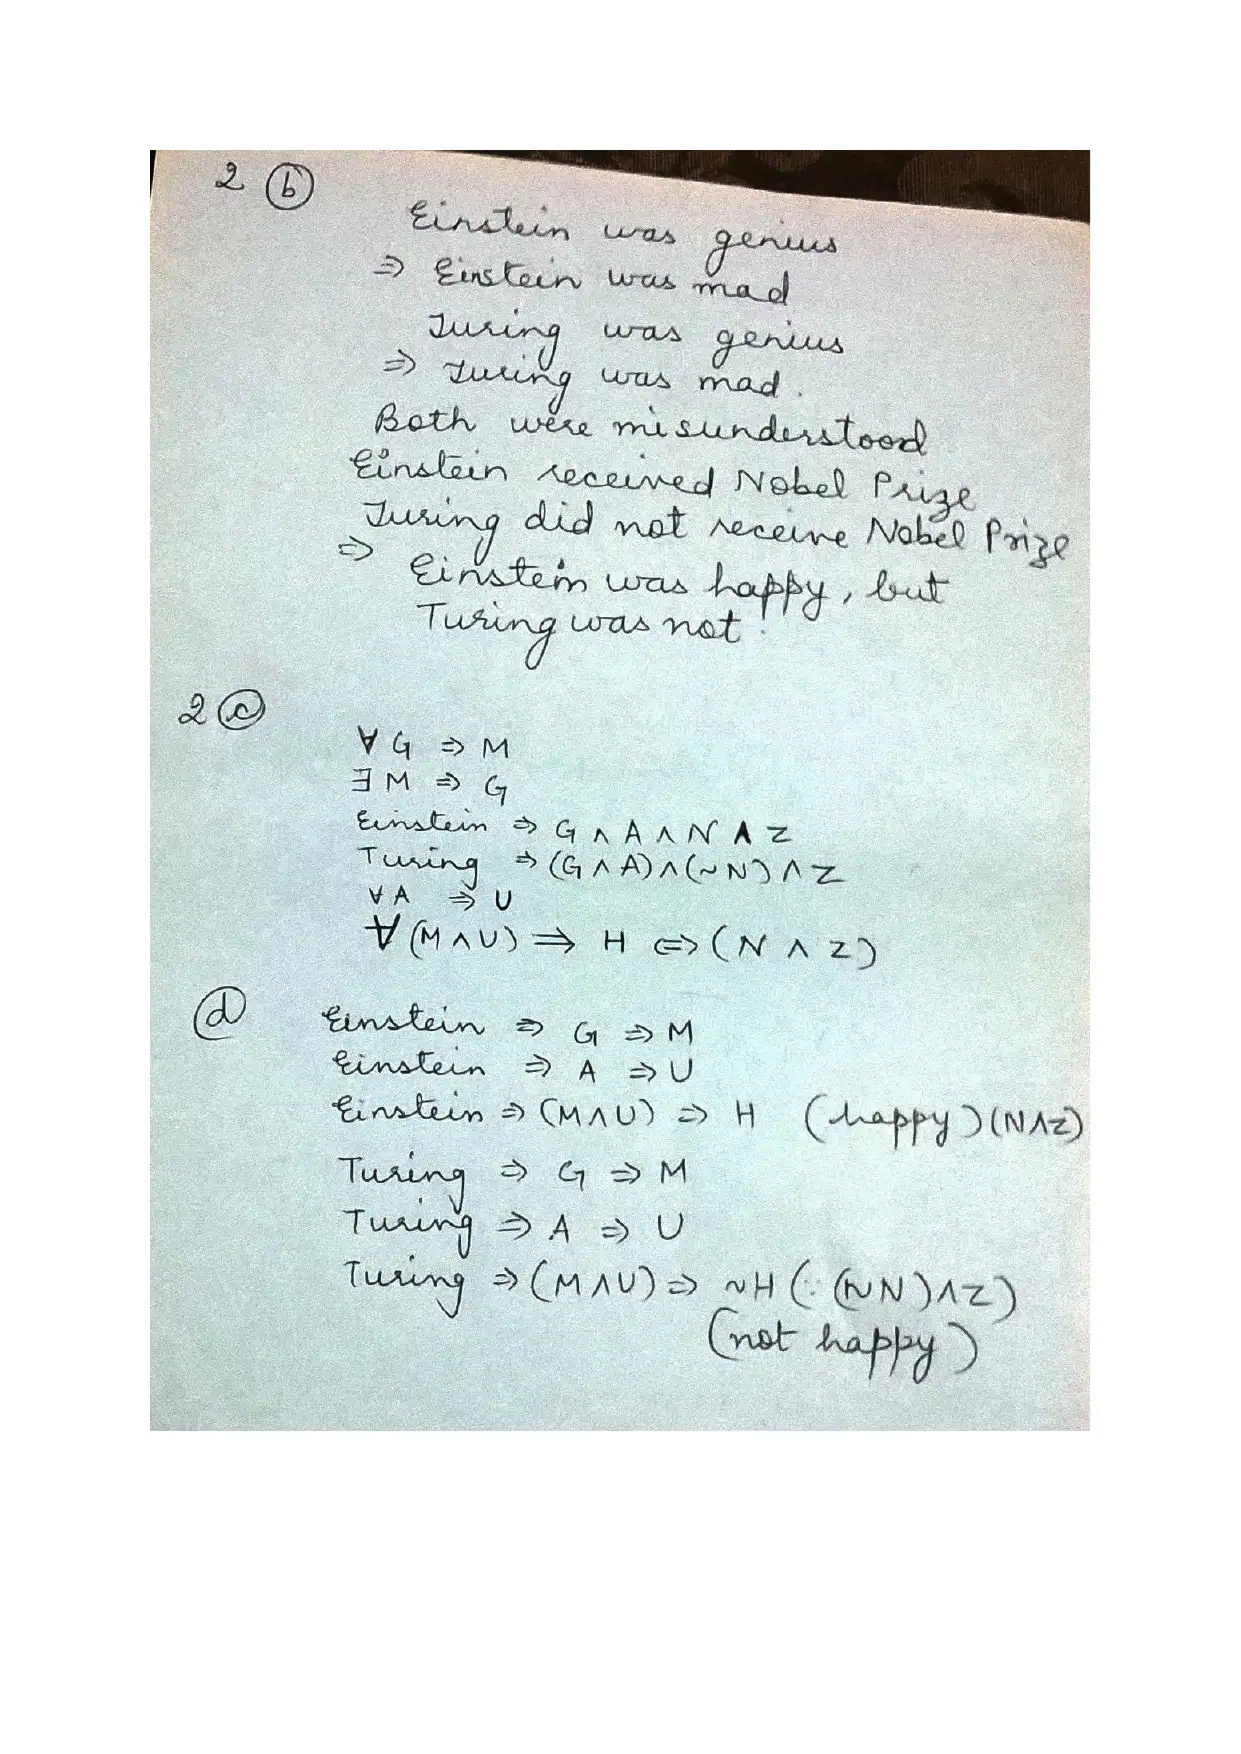 2 (b)
Einstein was genius
⇒ Einstein was mad
Turing was genius
⇒ Turing was mad.
Both were misunderstood
Einstein received Nobel Prize
Turing did not receive Nobel Prize
⇒ Einstein was happy, but
Turing was not.
2 (c)
∀ G ⇒ M
∃ M ⇒ G
Einstein ⇒ G ∧ A ∧ N ∧ Z
Turing ⇒ (G ∧ A) ∧ (~N) ∧ Z
∀ A ⇒ U
∀ (M ∧ U) ⇒ H ⇔ (N ∧ Z)
(d) Einstein ⇒ G ⇒ M
Einstein ⇒ A ⇒ U
Einstein ⇒ (M ∧ U) ⇒ H (happy) (N∧Z)
Turing ⇒ G ⇒ M
Turing ⇒ A ⇒ U
Turing ⇒ (M ∧ U) ⇒ ~H (∵ (~N) ∧ Z)
(not happy)